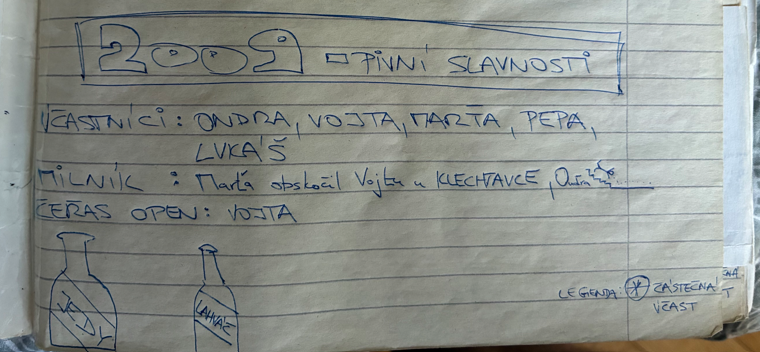 2009 - PIVNÍ SLAVNOSTI
ÚČASTNÍCI: ONDRA, VOJTA, MARŤA, PEPA,
LUKÁŠ
MILNÍK: Marťa obskočil Vojtu u KLECHTAVCE, Ondra
ČEŘAS OPEN: VOJTA
LAHVÁČ
LEGENDA: * ČÁSTEČNÁ
ÚČAST